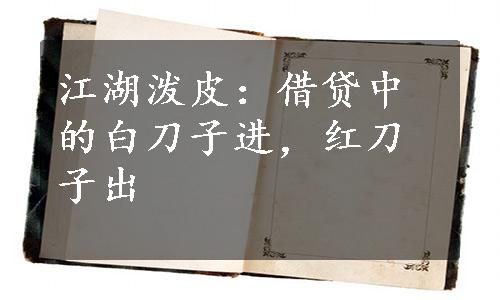 江湖泼皮：借贷中
的白刀子进，红刀
子出